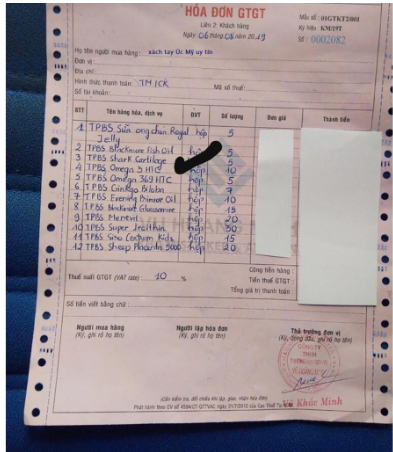 HÓA ĐƠN GTGT
Liên 2: Khách hàng
Ngày 06 tháng 08 năm 2019
Mẫu số: 01GTKT2001
Ký hiệu: KM/19T
Số: 0002082
Họ tên người mua hàng: xách tay Úc Mỹ uy tín
Đơn vị:
Địa chỉ:
Hình thức thanh toán: TM/CK Mã số thuế:
Số tài khoản:
STT Tên hàng hóa, dịch vụ ĐVT Số lượng Đơn giá Thành tiền
1 TPBS Sữa ong chúa Royal Jelly hộp 5
2 TPBS Blackmore Fish Oil hộp 5
3 TPBS Shark Cartilage 5
4 TPBS Omega 3 HTC hộp 10
5 TPBS Omega 369 HTC hộp 5
6 TPBS Ginkgo Biloba hộp 7
7 TPBS Evening Primrose Oil hộp 10
8 TPBS Glucosamine hộp 15
9 TPBS hộp 20
10 TPBS Super hộp 30
11 TPBS Centrum Kids hộp 15
12 TPBS Sheep Placenta 5000 hộp 20
Cộng tiền hàng:
Thuế suất GTGT (VAT rate): 10 % Tiền thuế GTGT
Tổng giá trị thanh toán:
Số tiền viết bằng chữ:
Người mua hàng
(Ký, ghi rõ họ tên)
Người lập hóa đơn
(Ký, ghi rõ họ tên)
Thủ trưởng đơn vị
(Ký, đóng dấu, ghi rõ họ tên)
CÔNG TY
TNHH
Khúc Minh
(Cần kiểm tra, đối chiếu khi lập, giao, nhận hóa đơn)